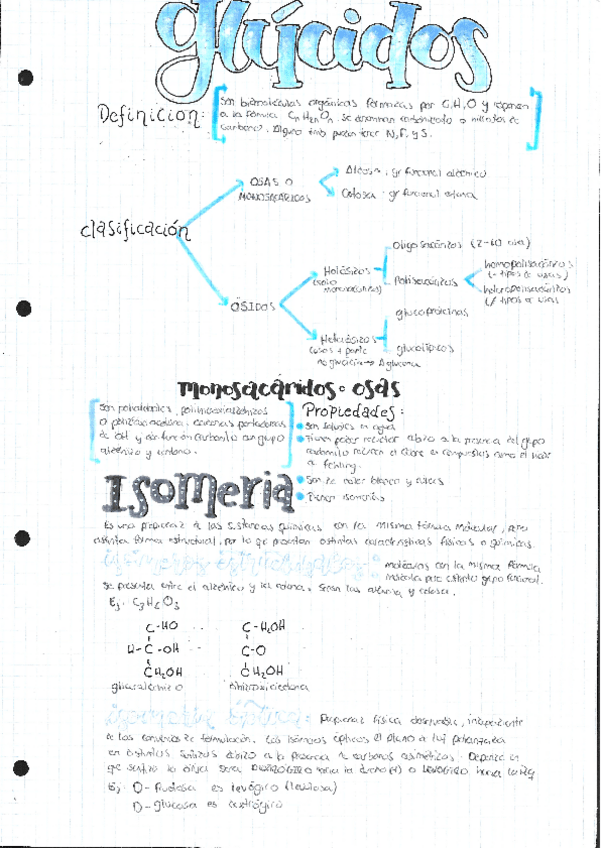 glúcidos
Definición: Son biomoléculas orgánicas formadas por C, H, O y responen
a la fórmula CnH2nOn. Se denominan carbohidratos o hidratos de
carbono. Alguno tmb pueden tener N, P, y S.
clasificación
OSAS O
MONOSACÁRIDOS
Aldosa. gr funcional aldehido
Cetosa. gr funcional cetona
ÓSIDOS
Holósidos
(solo
monosacáridos)
Oligosacáridos (2-10 osas)
Polisacáridos
homopolisacáridos
heteropolisacáridos
Heterósidos
(osas + parte
no glucídica → Aglucona
glucoproteínas
glucolípidos
monosacáridos o osas
Son polialcoholes, polihidroxialdehidos
o polihidroxicetona. cadenas portadoras
de OH y con función carbonilo en grupo
aldehido y cetona.
Propiedades:
Son solubles en agua
Tienen poder reductor debido a la presencia del grupo
carbonilo reducen el cobre en compuestos como el licor
de Fehling.
Son de color blanco y dulces
Tienen isomerías
Isomeria
Es una propiedad de las sustancias químicas con la misma fórmula molecular, pero
distinta fórmula estructural, por lo que presentan distintas características físicas o químicas.
moléculas con la misma fórmula
molecular pero distinto grupo funcional.
Se presenta entre el aldehido y las cetonas. Serán las aldosa y cetosa.
Ej. C3H6O3
C-HO
H-C-OH
CH2OH
gliceraldehido
C-H2OH
C-O
CH2OH
dihidroxiacetona
Propiedad física observable, independiente
de las convenios de formulación. Los isómeros ópticos el plano a luz polarizada
en distintos sentidos debido a la presencia de carbonos asimétricos. Depende en
que sentido lo dirija será DEXTRÓGIRO hacia la derecha (+) o LEVÓGIRO hacia la izq
Ej: D- Fructosa es levógiro (levulosa)
D- glucosa es dextrógiro